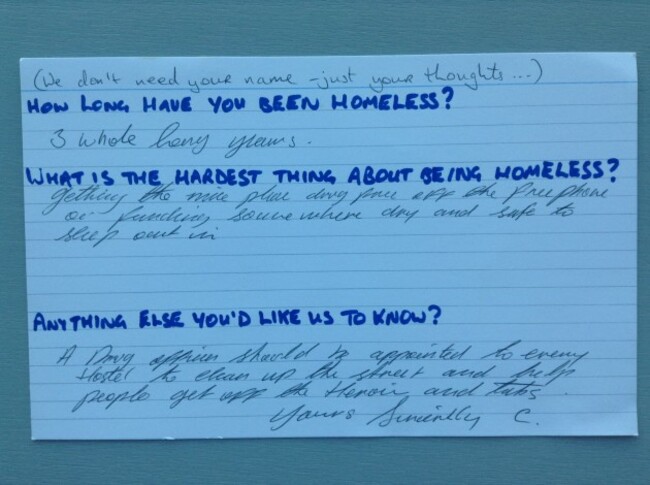 (We don't need your name - just your thoughts...)
HOW LONG HAVE YOU BEEN HOMELESS?
3 whole long years.
WHAT IS THE HARDEST THING ABOUT BEING HOMELESS?
getting the nice place drug free off the freephone
or finding somewhere dry and safe to
sleep out in
ANYTHING ELSE YOU'D LIKE US TO KNOW?
A Drug officer should be appointed to every
Hostel to clean up the street and help
people get off the Heroin and tabs.
Yours Sincerelly C.